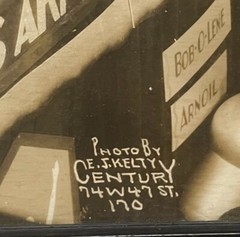 BOB-O-LENE
ARNOIL
PHOTO BY
E.J. KELTY
CENTURY
74 W 47 ST.
170